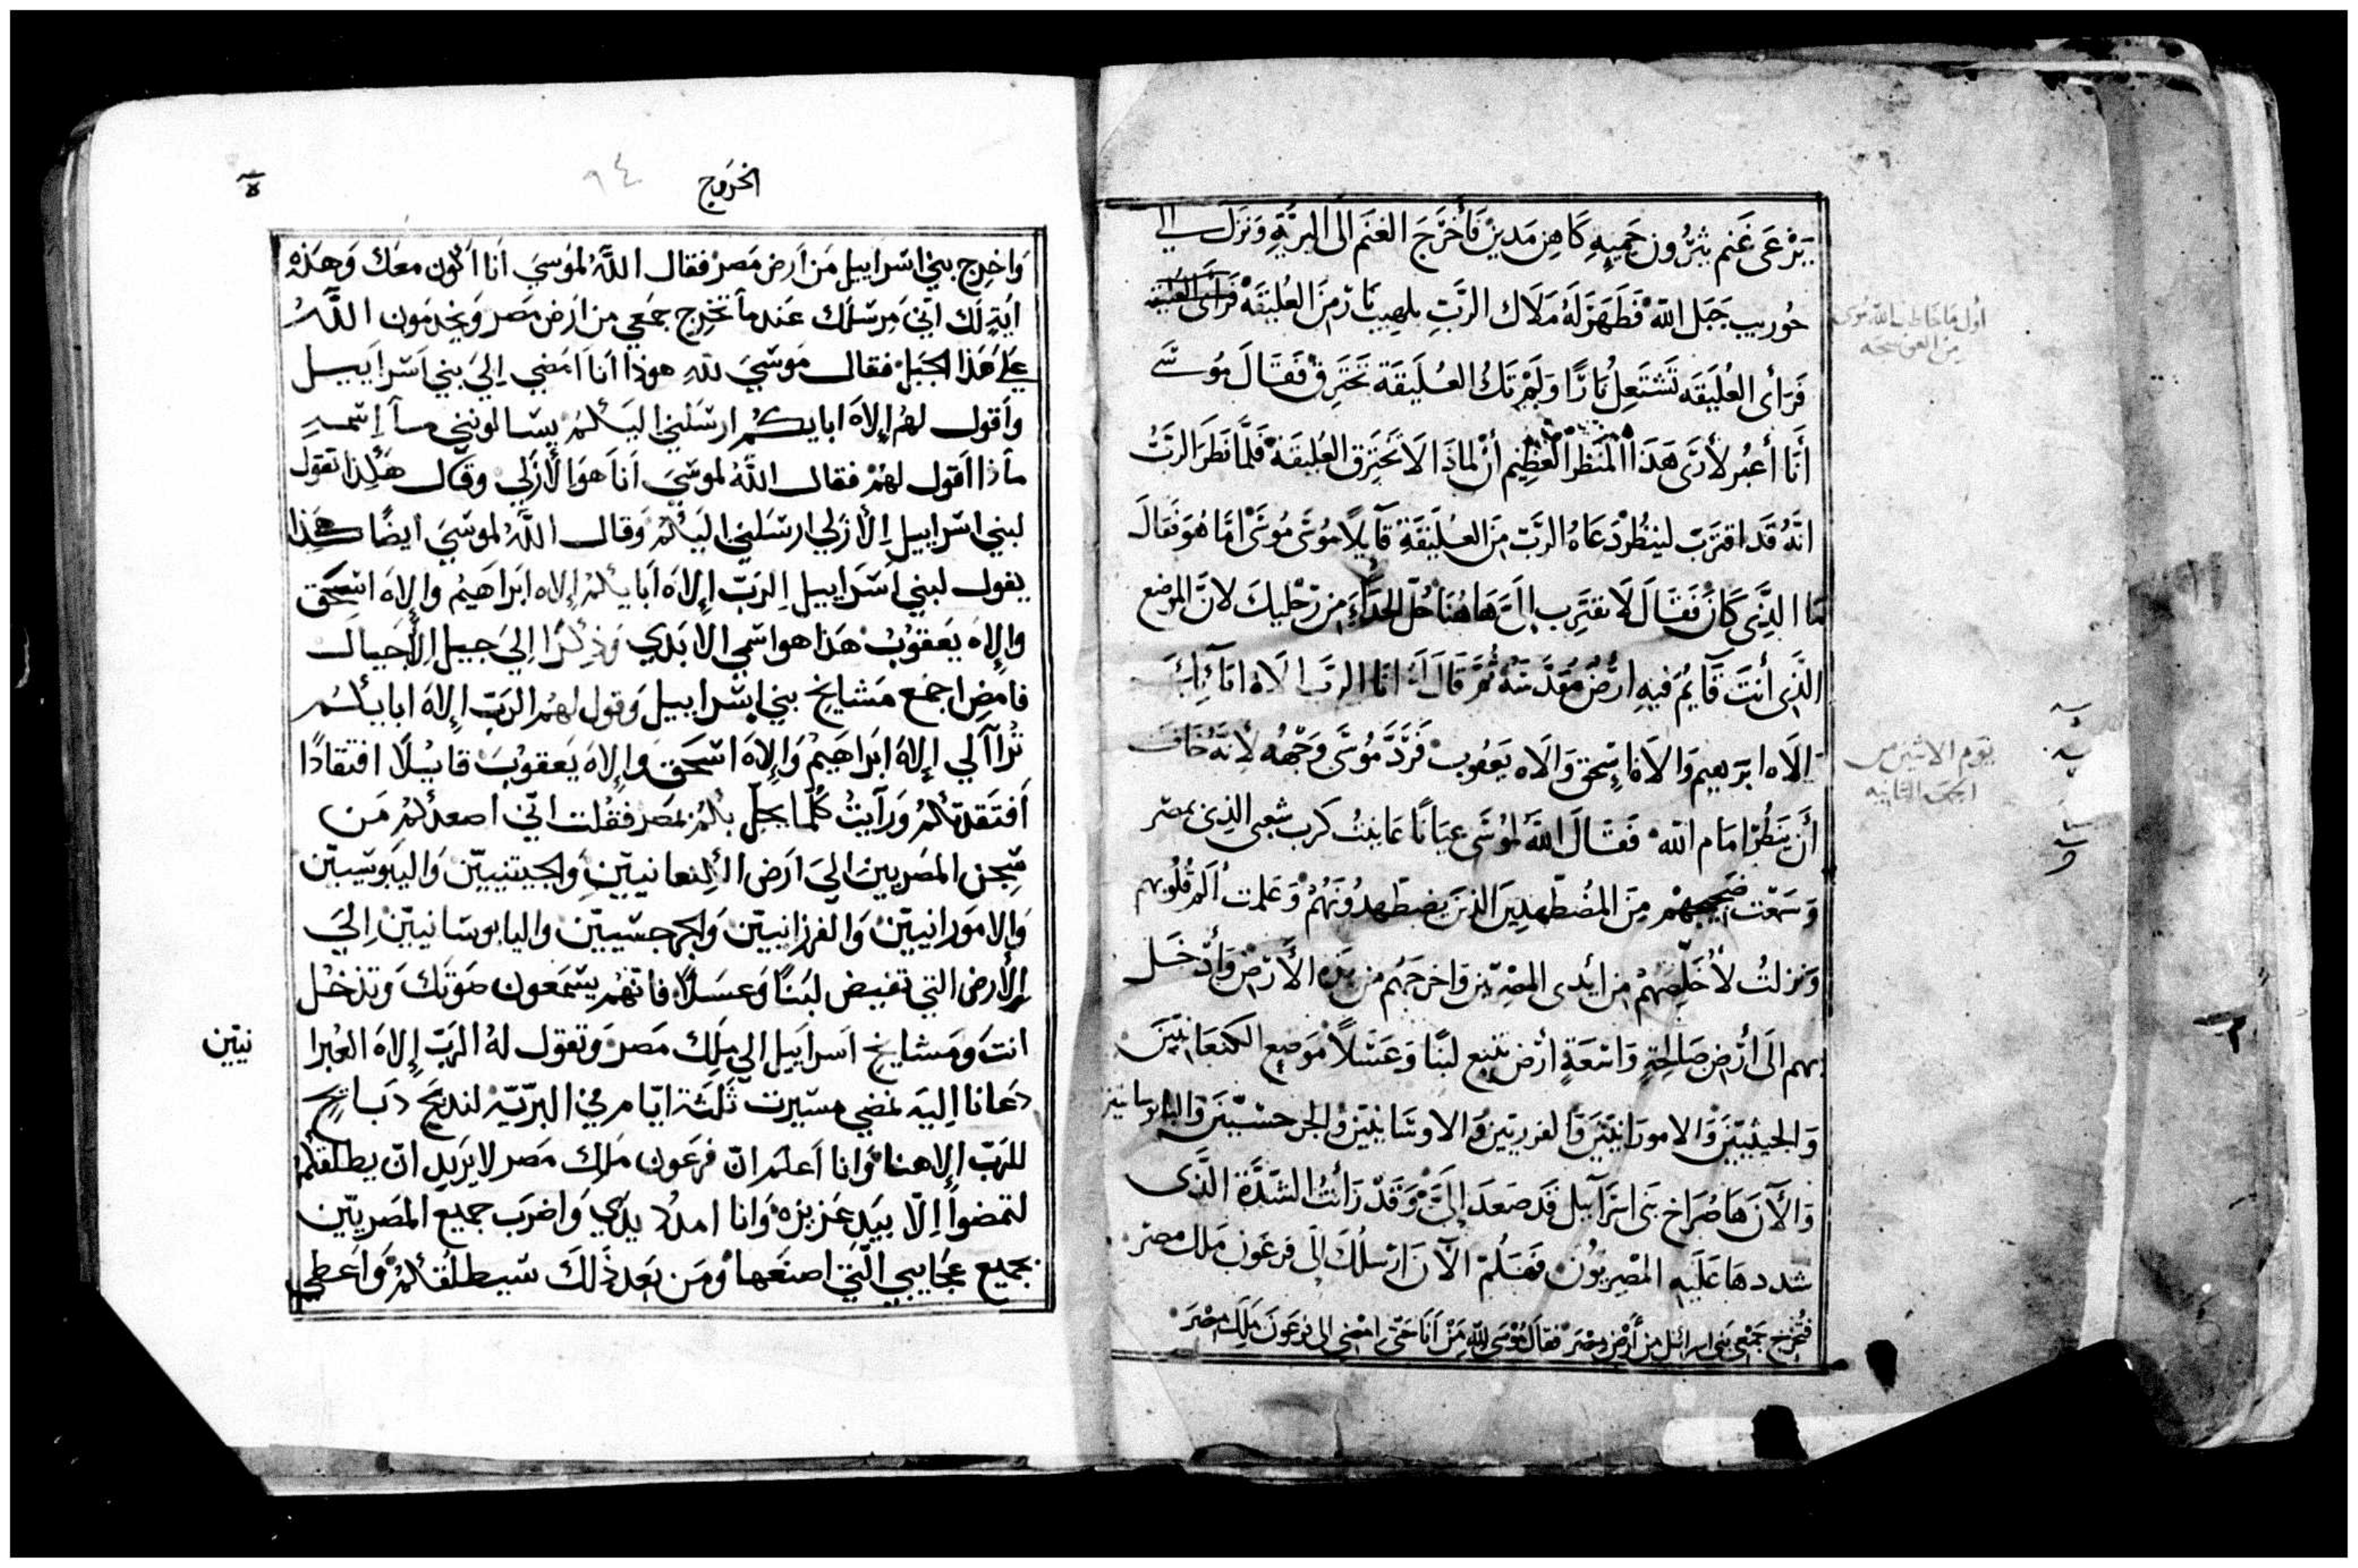 يَرْعَى غَنم يثرُون حَمِيهِ كَاهِن مَدين فَأخرَجَ الغنَم الَى البريَّةِ وَنزَلَ الي
حُوريب جَبَل اللّه فَظَهَرَ لَهُ مَلَاك الرَّبِ بلهِيب نَار مِنَ العُليقَة
أول مَا خَاطب اللّه مُوسَى
مِن العوسجه
فَرَأى العُلَيقَه تَشتَعِلُ نَارًا وَلَم تَكُ العُلَيقَة تَحتَرِق فَقَالَ مُوسَى
أنَا أعبُر لأرَى هَذَا المَنظَر العَظِيم أن لمَاذَا لَا تَحتَرِق العُليقَة فَلَمَّا نَظَرَ الرَّبُّ
انَّهُ قَد اقتَرَبَ لينظُر دَعَاهُ الرَّبّ مِنَ العُلَيقَةِ قَآيِلًا مُوسَى مُوسَى امَّا هُوَ فَقَالَ
مَا الذِّى كَانَ فَقَالَ لَا تقتَرِب إلَى هَاهُنَا حُلّ الحذَاءَ مِن رِجْليكَ لانَّ الموضع
الَّذِى أنتَ قَآيِمُ فيهِ ارْضُ مُقَدَّسَةُ ثُمَّ قَالَ لَهُ انَا الرَّبّ الَاه ابَآئكَ
إلَاه ابرَهِيم وَالَاه اسحق وَالَاه يَعقُوب فَرَدَّ مُوسَى وَجْههُ لأنَّهُ خَافَ
يَوم الاثنين من
الجمعه الثانيه
أن يَنظُر امَام اللّه فَقَالَ اللّهُ لمُوسَى عيَانًا عَاينتُ كَرب شَعبِى الذِى بمصر
وَسَمعت ضَجِيجهُم مِنَ المُضطَهِدِينَ الذِينَ يَضطَهِدُونَهُم وَعَلمتُ ألَم قُلُوبهم
وَنزلتُ لأُخَلِّصَهُم مِن أيدى المصرِيين وَاخرجَهُم مِن هَذِه الأرْض وَأُدخل
بهم الَى أرْضٍ صَالِحةٍ وَاسعَةٍ أرْض تنبع لبنًا وَعَسَلًا مَوضِع الكنعَانيّينَ
وَالحيثيّينَ وَالامورَانيّينَ وَالفرزيّينَ وَالاوسَانيّينَ وَالجرجسيّينَ وَاليابوسانيين
وَالآنَ هَا صُرَاخ بَنى اسرَآئيل قَد صَعَدَ إلَيَّ وَقَد رَأيتُ الشدَّة الَّذى
شددهَا عَلَيهِ المصريُون فَهَلُمّ الآن ارسلُكَ الَى فرعَون مَلك مصر
فتُخرج جَمعى بَنى اسرائيل من أرْض مصْرَ فقال مُوسَى للّه مَنْ أنَا حَتى امضى الى فرعَون مَلك مصْرَ
الخروج
٩٤
وَاخرِج بني اسرَاييل مَن اَرض مَصر فقال اللّهُ لموسيَ اَنا اَكون معَك وَهَذه
ايَةٍ لَك انّي مَرسَلَك عَندما تخرِج جمَعي من اَرض مَصر وَيخدمون اللّهُ
علَي هَذا الجَبَل فقال مَوسَيَ للّهِ هوذا اَنا اَمَضي اِلَي بَني اَسَراييل
واَقول لهمُ اِلاهَ ابايكُم ارسَلني اليَكُم يسَالونني مآ اِسمه
مآذا اَقول لهُم فقال اللّهُ لموسَيَ اَناَ هوَ الأزَلي وقال هَكذا تقول
لبني اسَراييل الأزَلي ارسَلني اليَكُم وَقال اللّهُ لموسَيَ ايضًا هكَذا
يقول لبني اَسَراييل الرَبّ اِلاهَ ابايكُم اِلاه ابرَاهيم واِلاهَ اسَحَق
واِلاه يَعقوب هَذا هو اسَمي الابَدي وَذِكرًا اِلي جيل الأجيال
فامَضِ اجمَع مَشايخ بني اِسَراييل وَقول لهُم الرَبّ اِلاهَ ابايكُم
تَرآآ لي اِلاهَ ابرَاهيم وَاِلاهَ اسَحَق وَاِلاهَ يَعقوبَ قايلًا افتقادًا
اَفتقَدتكُم وَرَآيتُ كُلّما يحلّ بكُم بمَصر فقُلت انّي اصعدكُم مَن
سِجن المصَريين الَي ارَض الكنعانيّين وَالجيتيّين وَاليَبوسيّين
وَالامَورانييّن وَالفرزانييّن وَالجرجسّييّن واليابوسَانييّن اِليَ
الأرض التي تفيض لبَنًا وَعسَلًا فانّهم يسَمَعون صَوتَك وَتدخل
انتَ وَمَشايخ اَسراييل الي ملك مَصر وَتقول لهُ الرَبّ اِلاهَ العُبرا
نييّن
دعَانا اِليهَ نمضي مسَيرت ثَلثة ايّام في البرّيّه لنذبحَ ذبايح
للرَبّ اِلاهنا وَانا اَعلمَ انّ فرعَون مَلِك مَصر لا يَريد انّ يطلقكُم
لتمضوا اِلّا بيَد عَزيزه وَانا امدُد يدَي وَاضرَب جميع المصَرييّن
بجميع عَجَايبي الّتي اصنَعها وَمن بَعد ذَلكَ سَيطلقكُم وَاَعطي